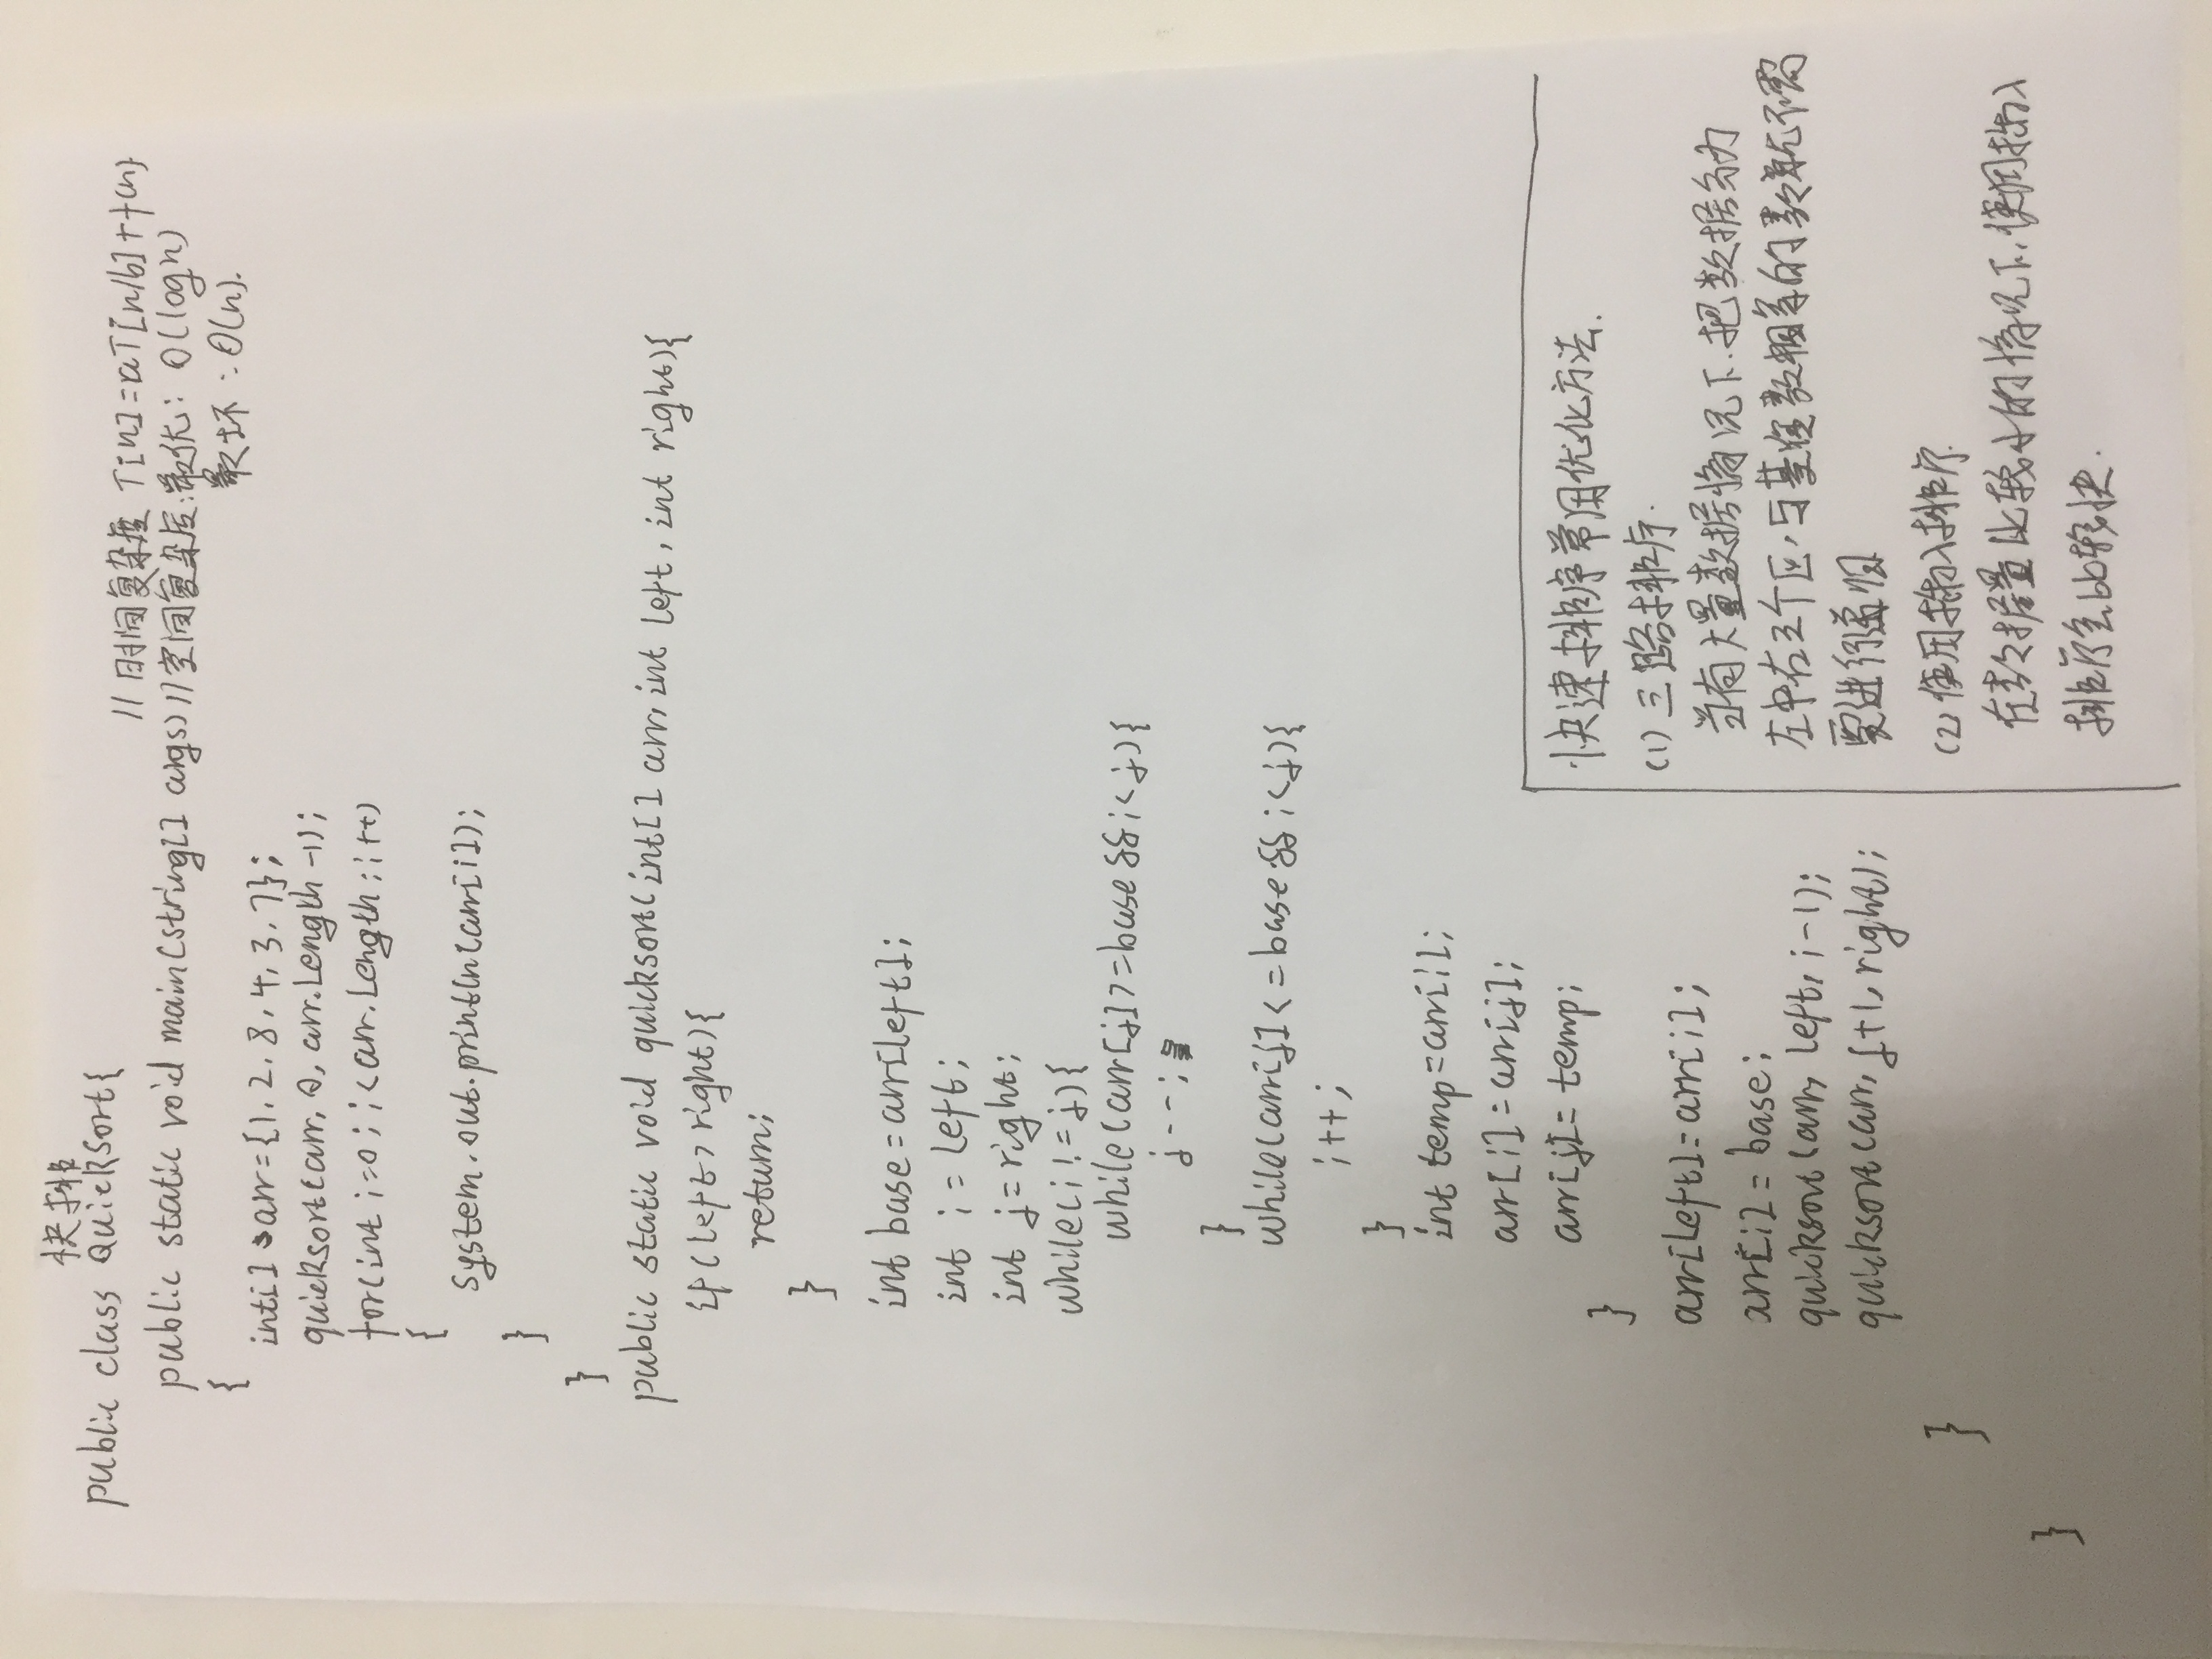 快排
public class QuickSort{
// 时间复杂度 T[n]=aT[n/b]+f(n)
public static void main(string[] args) // 空间复杂度:最优: O(logn)
最坏: O(n).
{
int[] arr={1,2,8,4,3,7};
quicksort(arr, 0, arr.Length-1);
for(int i=0; i<arr.Length; i++)
{
System.out.println(arr[i]);
}
}
public static void quicksort(int[] arr, int left, int right){
if(left>right){
return;
}
int base=arr[left];
int i=left;
int j=right;
while(i!=j){
while(arr[j]>=base&&i<j){
j--;
}
while(arr[j]<=base&&i<j){
i++;
}
int temp=arr[i];
arr[i]=arr[j];
arr[j]=temp;
}
arr[left]=arr[i];
arr[i]=base;
quicksort(arr, left, i-1);
quicksort(arr, j+1, right);
}
}
快速排序常用优化方法.
(1) 三路排序.
当有大量数据情况下.把数据分为
左中右三个区,与基准数相等的数就不需
要进行递归
(2) 使用插入排序.
在数据量比较小的情况下,使用插入
排序会比较快.